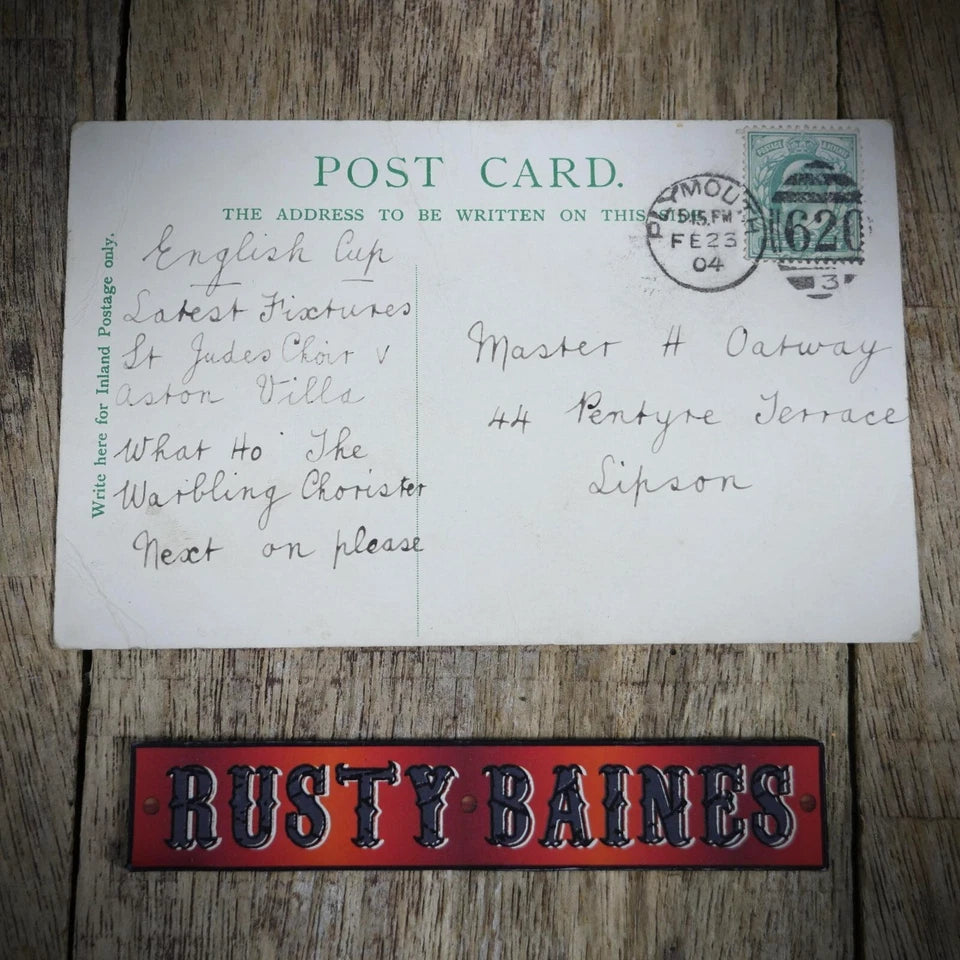 POST CARD.
THE ADDRESS TO BE WRITTEN ON THIS SIDE.
Write here for Inland Postage only.
English Cup
Latest Fixtures
St Judes Choir v
Aston Villa
What Ho The
Warbling Chorister
Next on please
PLYMOUTH
5.15.PM
FE 23
04
620
3
Master H Oatway
44 Pentyre Terrace
Lipson
RUSTY BAINES